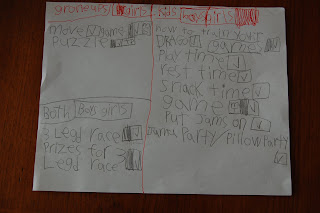 groneups girls kids boy girls
move game
PUZZlE
how to train your
DRAGON game
Pay time
rest time
Snack time
game
Put Jams on
Jama Party/Pillow Party
Both Boys girls
3 Legd race
Prizes for 3
Legd race